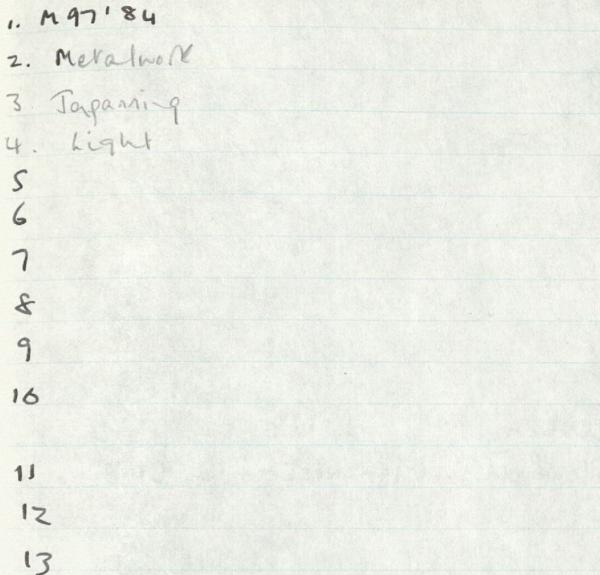 1. M97'84
2. Metalwork
3 Japanning
4. Light
5
6
7
8
9
10
11
12
13